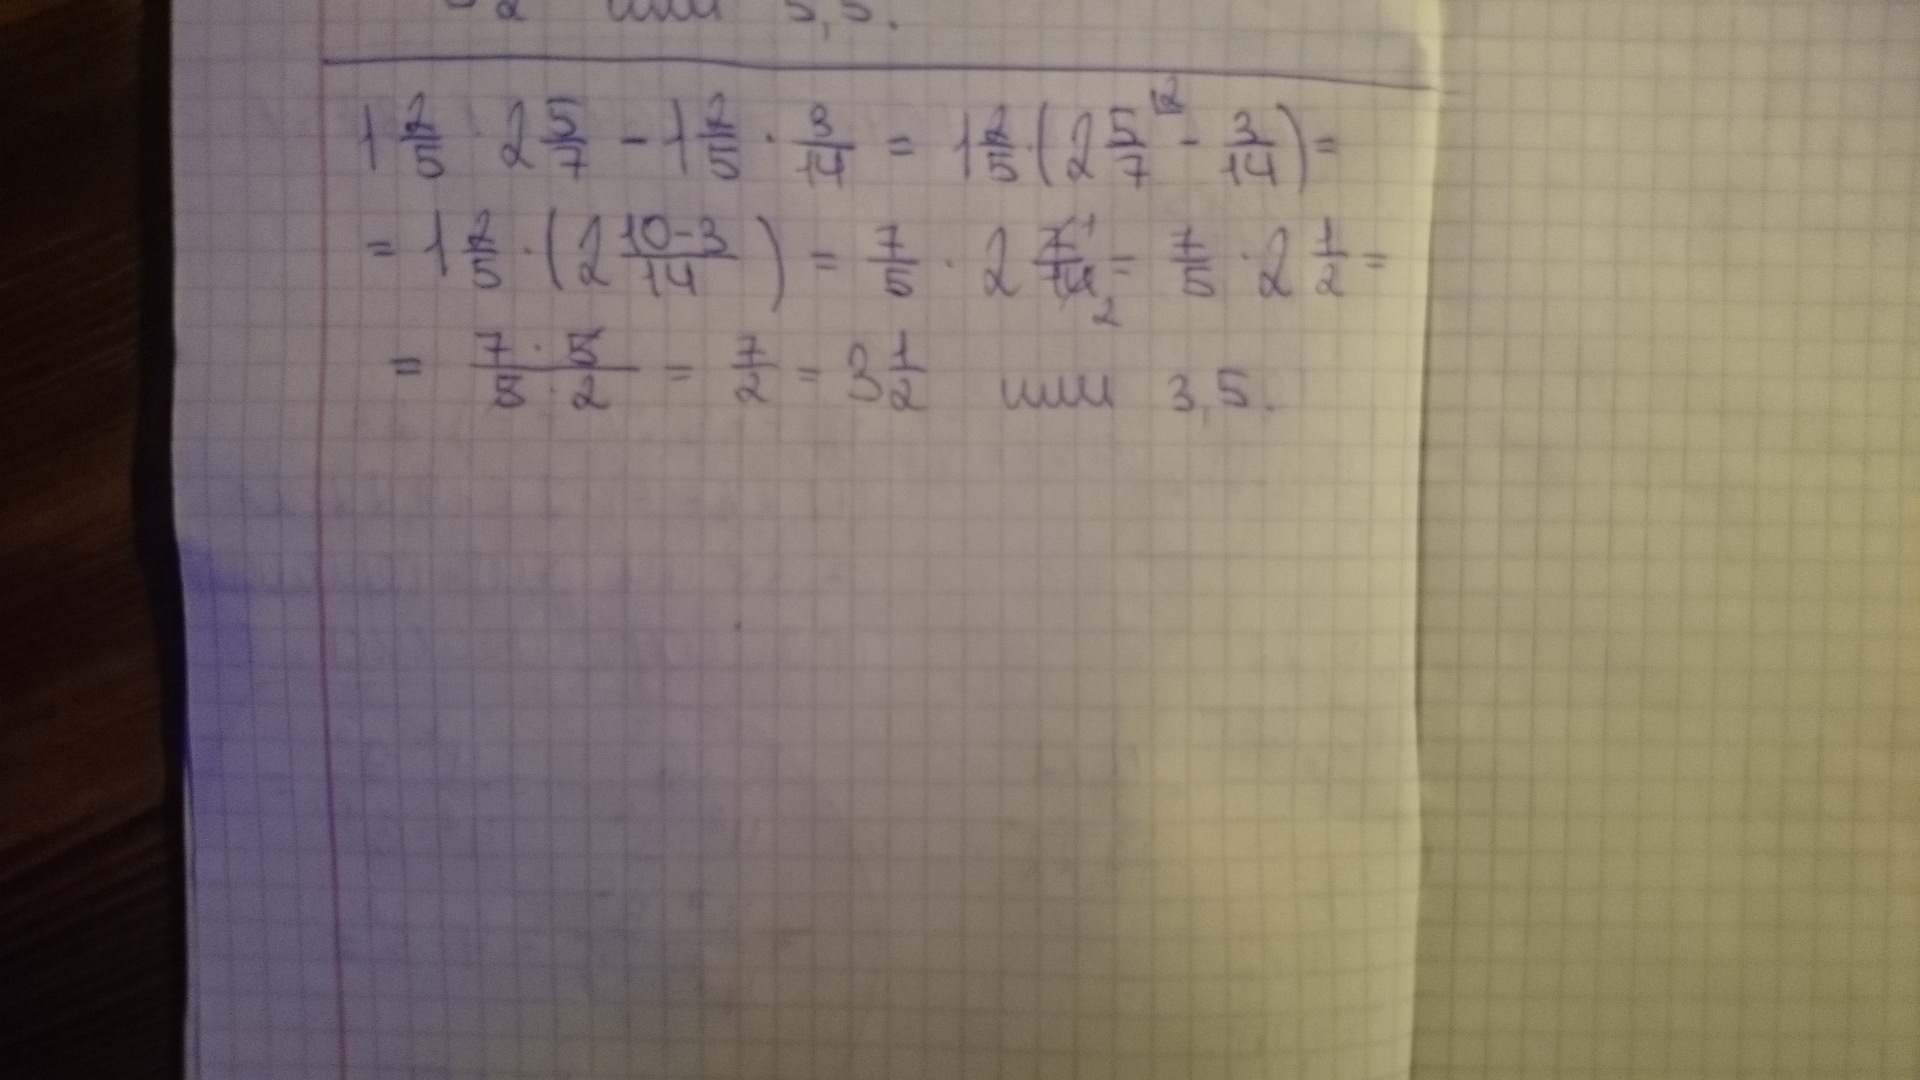 2 или 5,5.
1 2/5 · 2 5/7 - 1 2/5 · 3/14 = 1 2/5 · (2 5/7 - 3/14) =
= 1 2/5 · (2 10-3/14) = 7/5 · 2 7/14 = 7/5 · 2 1/2 =
= 7·5/5·2 = 7/2 = 3 1/2 или 3,5.